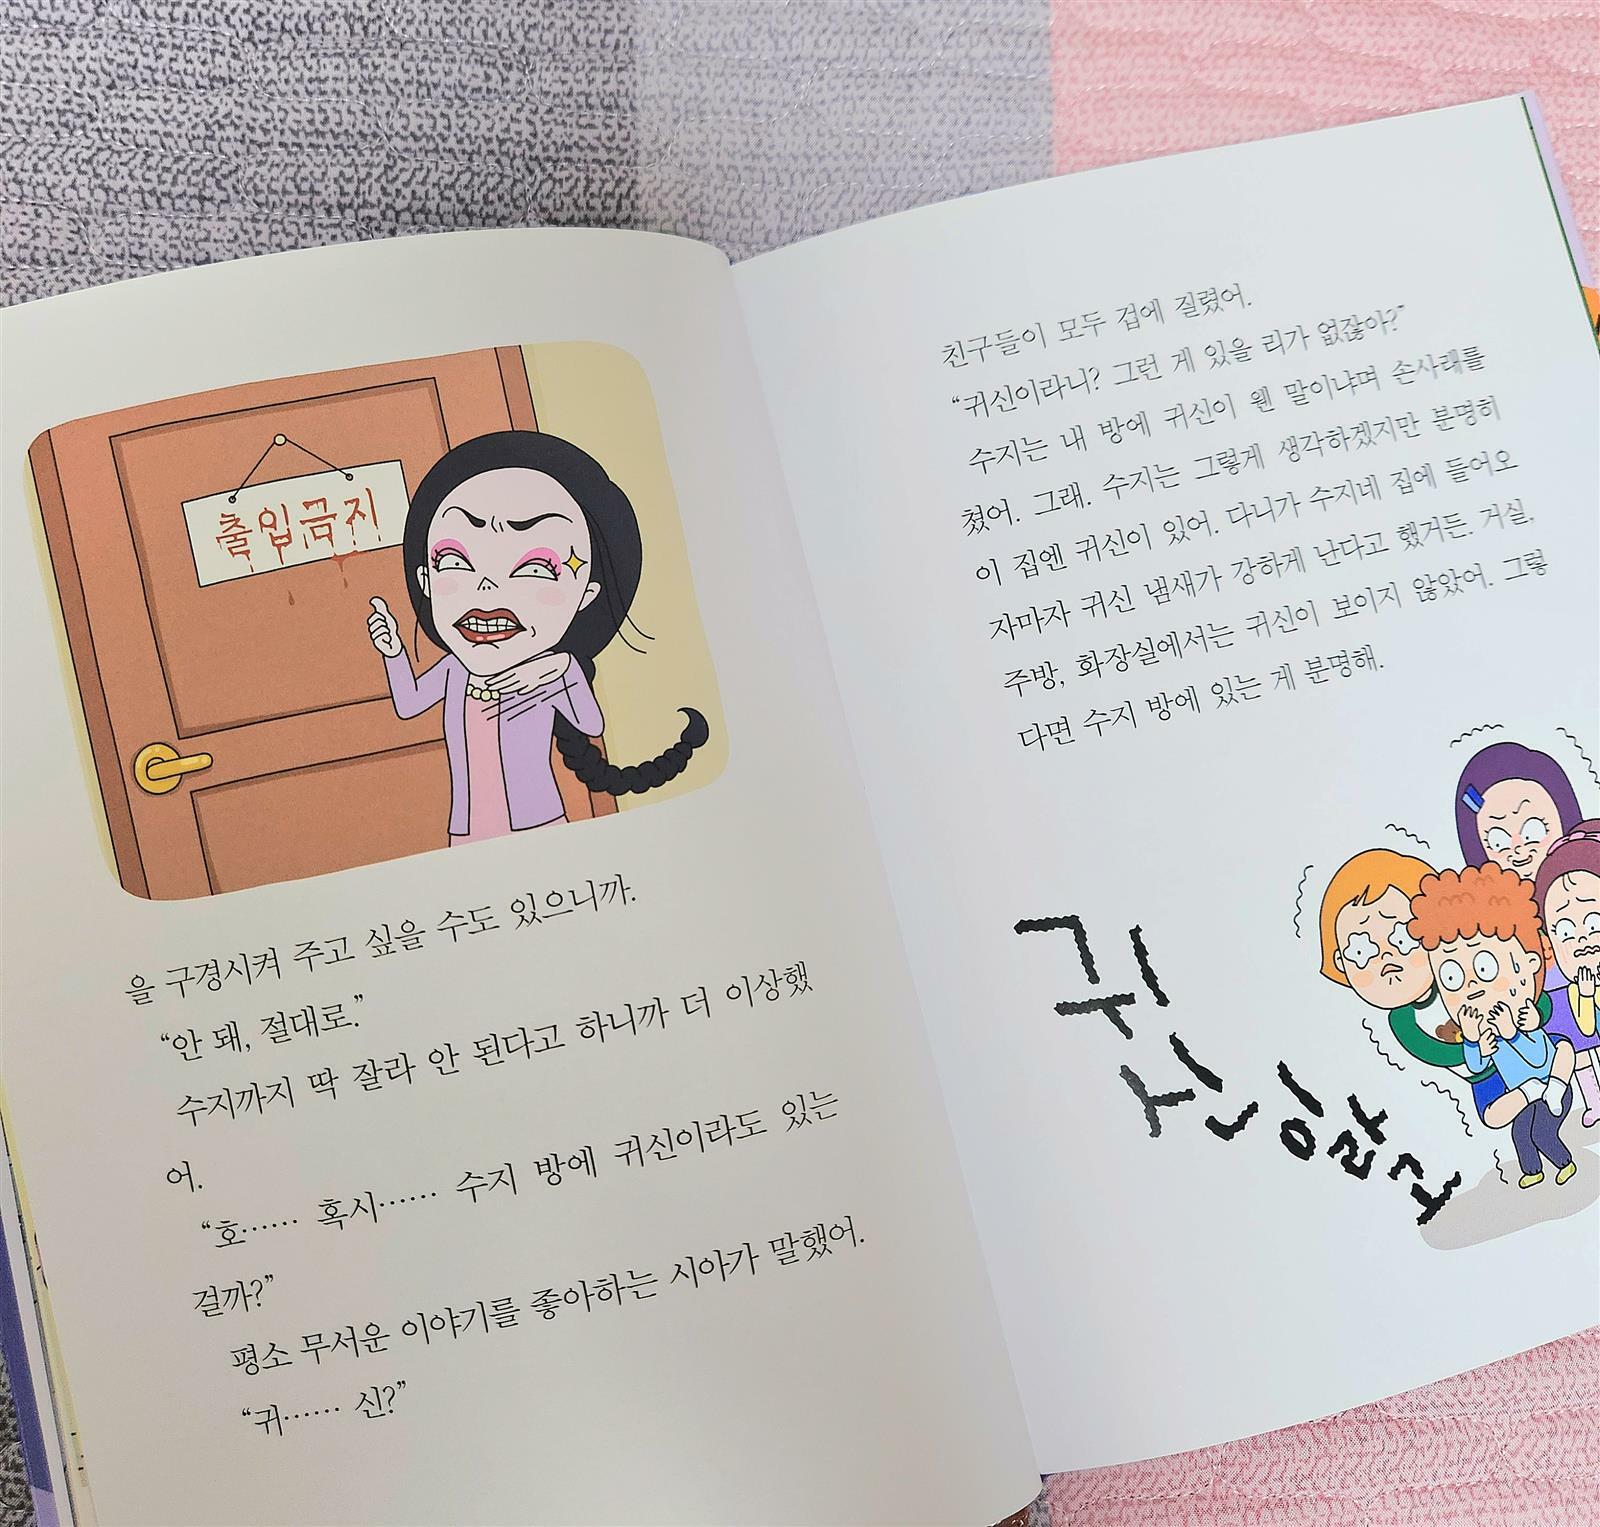 출입금지
을 구경시켜 주고 싶을 수도 있으니까.
“안 돼, 절대로.”
수지까지 딱 잘라 안 된다고 하니까 더 이상했
어.
“호…… 혹시…… 수지 방에 귀신이라도 있는
걸까?”
평소 무서운 이야기를 좋아하는 시아가 말했어.
“귀…… 신?”
친구들이 모두 겁에 질렸어.
“귀신이라니? 그런 게 있을 리가 없잖아?”
수지는 내 방에 귀신이 웬 말이냐며 손사래를
쳤어. 그래. 수지는 그렇게 생각하겠지만 분명히
이 집엔 귀신이 있어. 다니가 수지네 집에 들어오
자마자 귀신 냄새가 강하게 난다고 했거든. 거실,
주방, 화장실에서는 귀신이 보이지 않았어. 그렇
다면 수지 방에 있는 게 분명해.
귀
신이라고